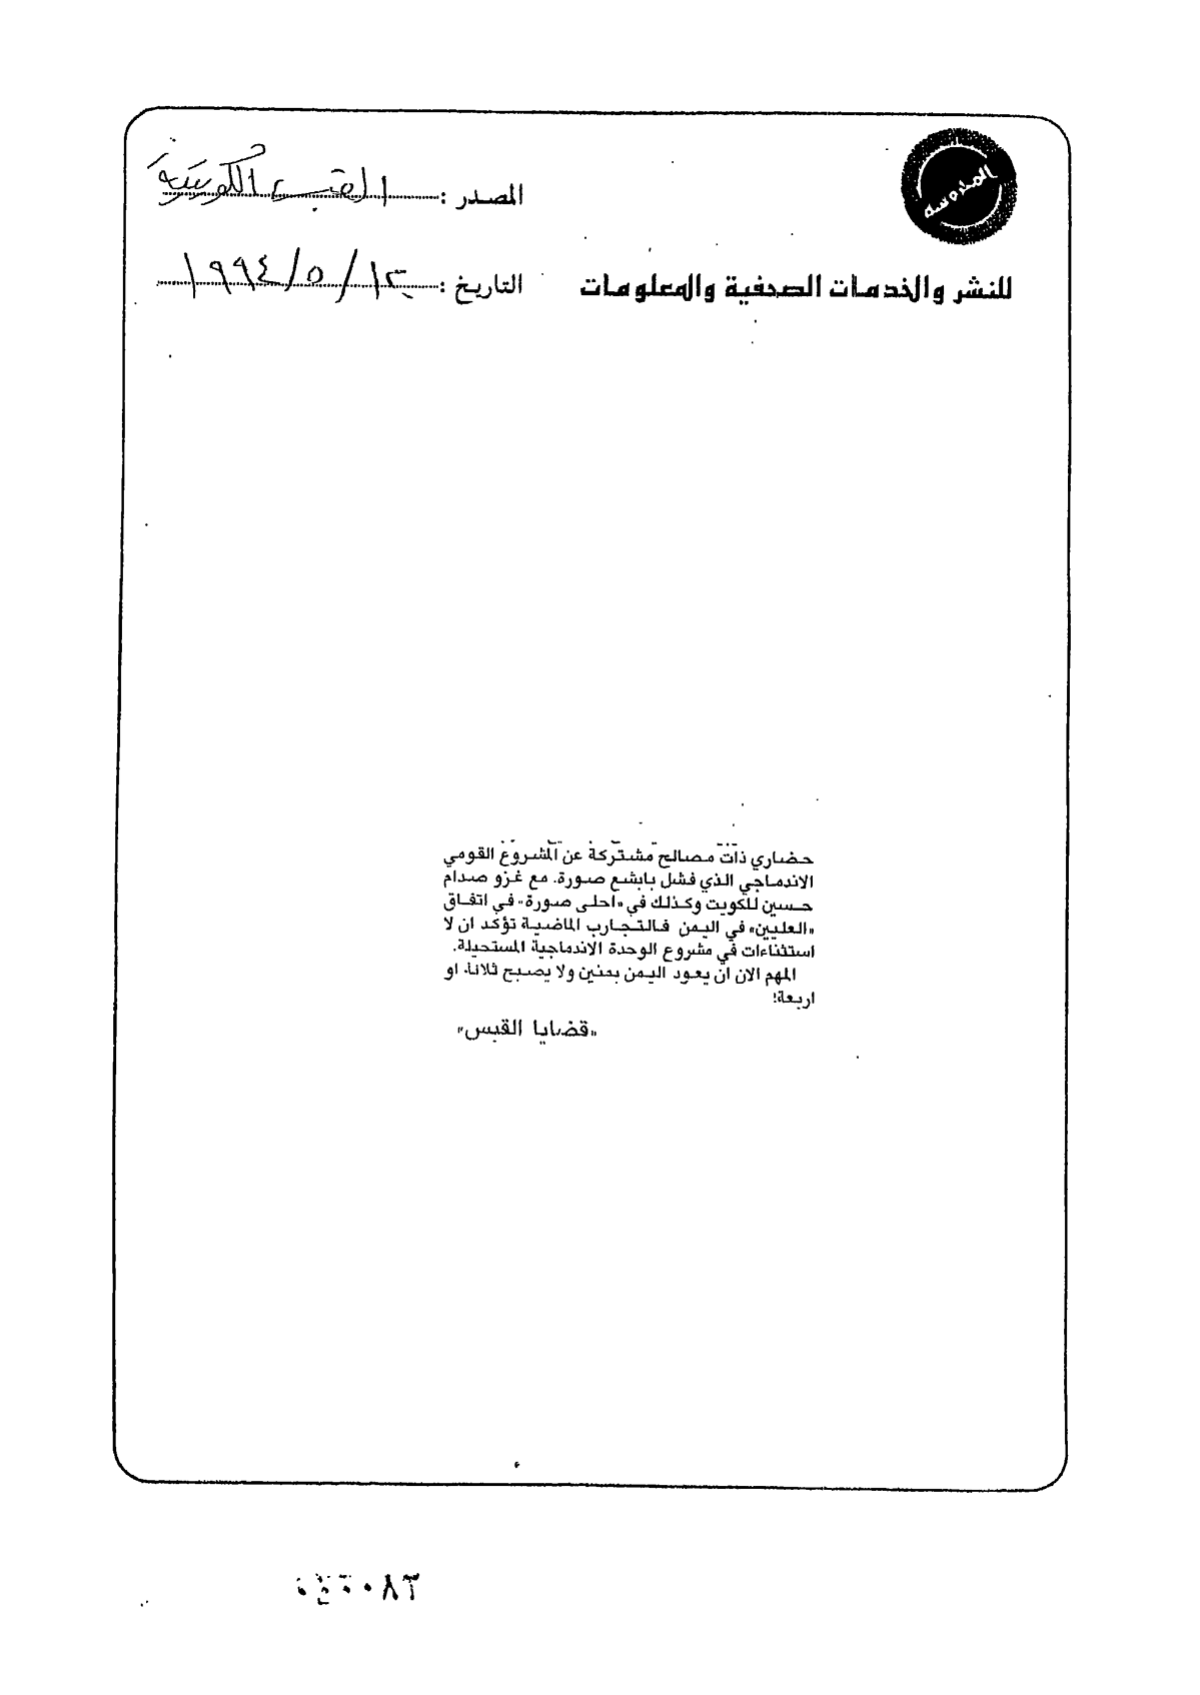 المحروسة
المصدر : القبس الكويتية
للنشر والخدمات الصحفية والمعلومات
التاريخ : ١٢ / ٥ / ١٩٩٤
حضاري ذات مصالح مشتركة عن المشروع القومي
الاندماجي الذي فشل بابشع صورة. مع غزو صدام
حسين للكويت وكذلك في «احلى صورة» في اتفاق
«العليين» في اليمن فالتجارب الماضية تؤكد ان لا
استثناءات في مشروع الوحدة الاندماجية المستحيلة.
المهم الان ان يعود اليمن يمنين ولا يصبح ثلاثا، او
اربعة!
«قضايا القبس»